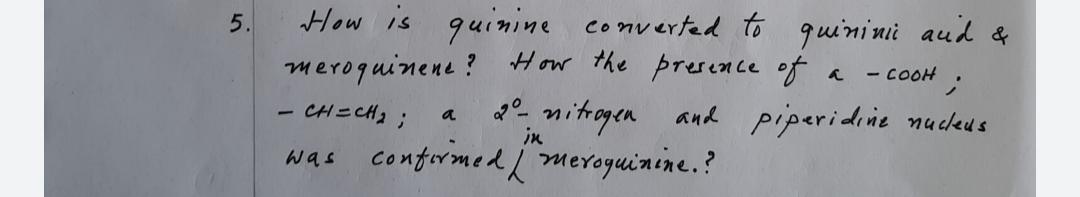 5. How is quinine converted to quininic acid &
meroquinene? How the presence of a - COOH ;
- CH=CH₂ ; a 2°- nitrogen and piperidine nucleus
was confirmed in meroquinine.?